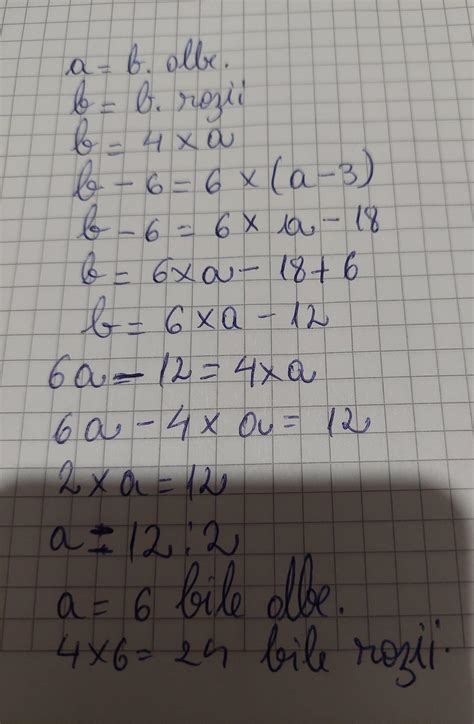 a = b. albe.
b = b. rozii
b = 4 × a
b - 6 = 6 × (a - 3)
b - 6 = 6 × a - 18
b = 6 × a - 18 + 6
b = 6 × a - 12
6a - 12 = 4 × a
6a - 4 × a = 12
2 × a = 12
a = 12 : 2
a = 6 bile albe.
4 × 6 = 24 bile rozii.